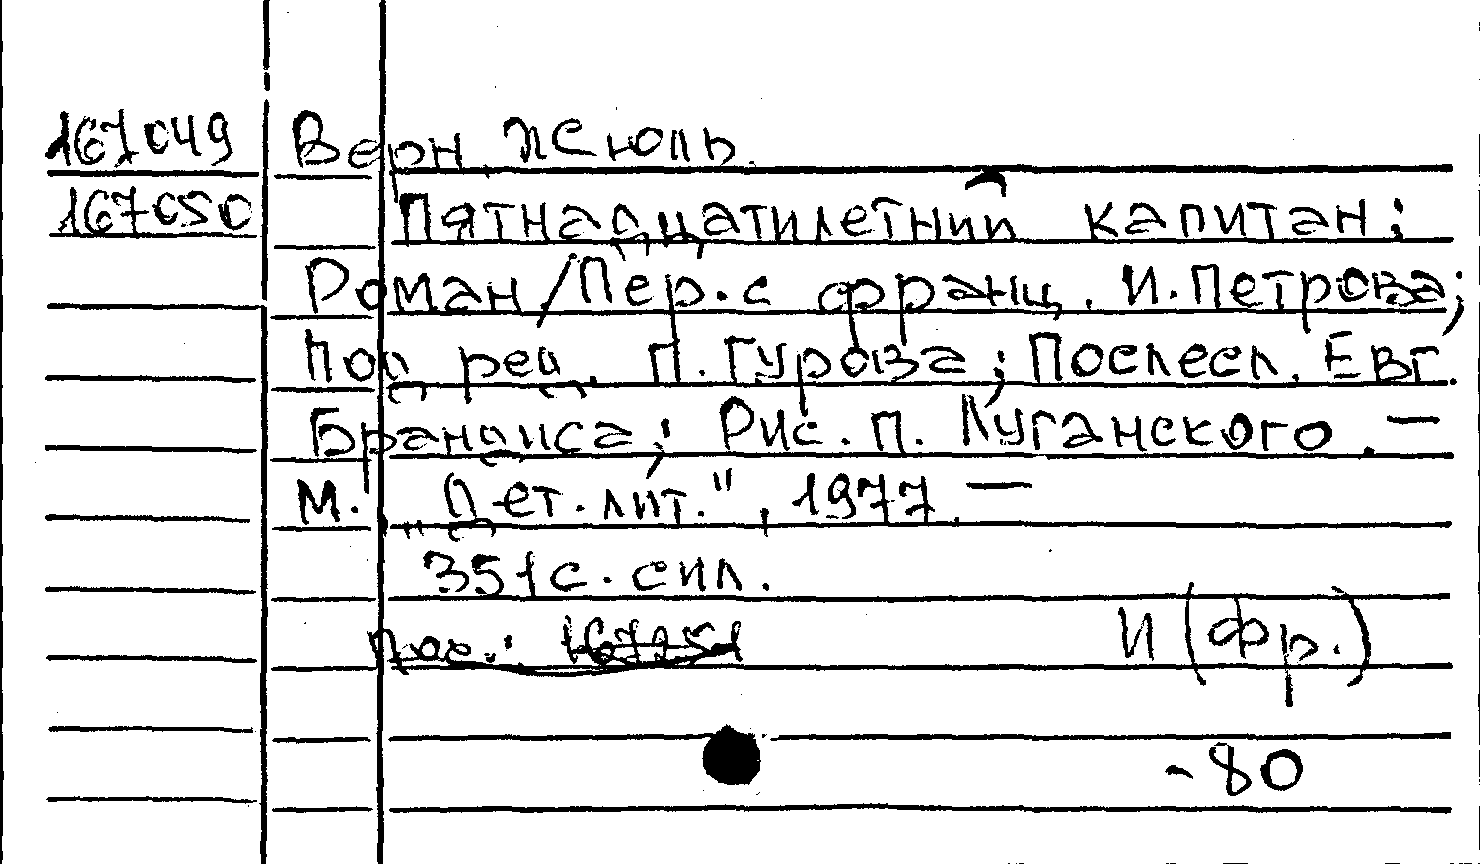 167049 Верн, Жюль.
167050 Пятнадцатилетний капитан:
Роман/Пер. с франц. И. Петрова;
Под ред. П. Гурова; Послесл. Евг.
Брандиса; Рис. П. Луганского. —
М.: „Дет. лит.", 1977. —
351 с. с ил.
И (фр.)
-80